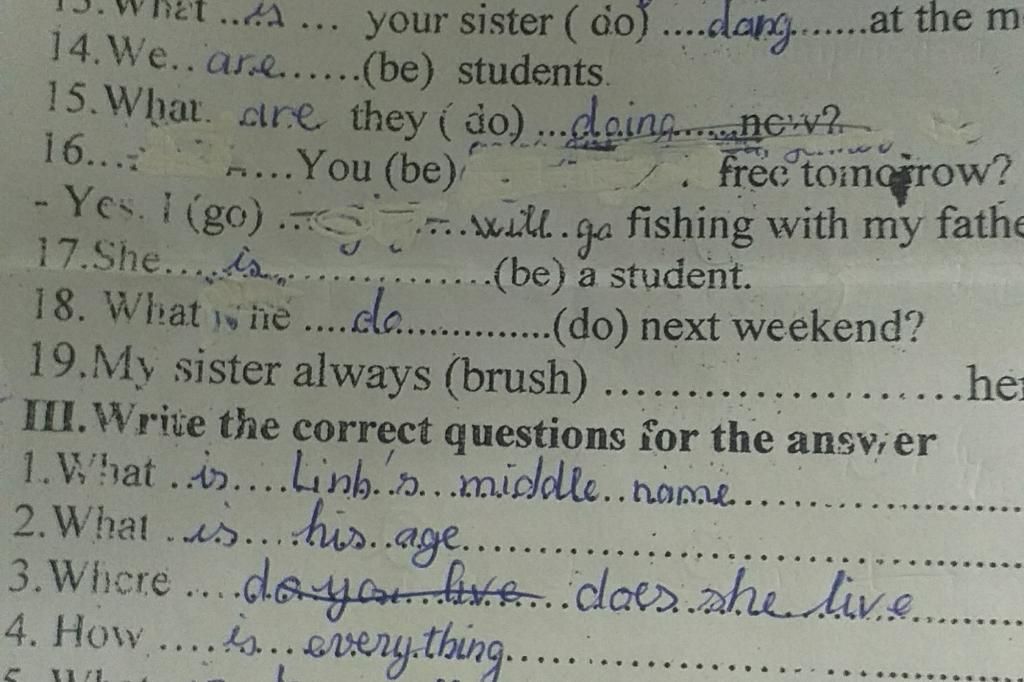 13. What ..is ... your sister ( do) ....dang.......at the m
14. We.. are.......(be) students.
15. What. are they ( do) ...doing......now?
16....: ....You (be) free tomorrow?
- Yes. I (go) ....will.go fishing with my fathe
17. She.....is................(be) a student.
18. What is he ....do.............(do) next weekend?
19. My sister always (brush) ......................her
III. Write the correct questions for the answer
1. What ..is....Linh's...middle..name.................
2. What ..is....his..age.................
3. Where ....do you live...does..she live.......
4. How ....is...everything.................
5. What